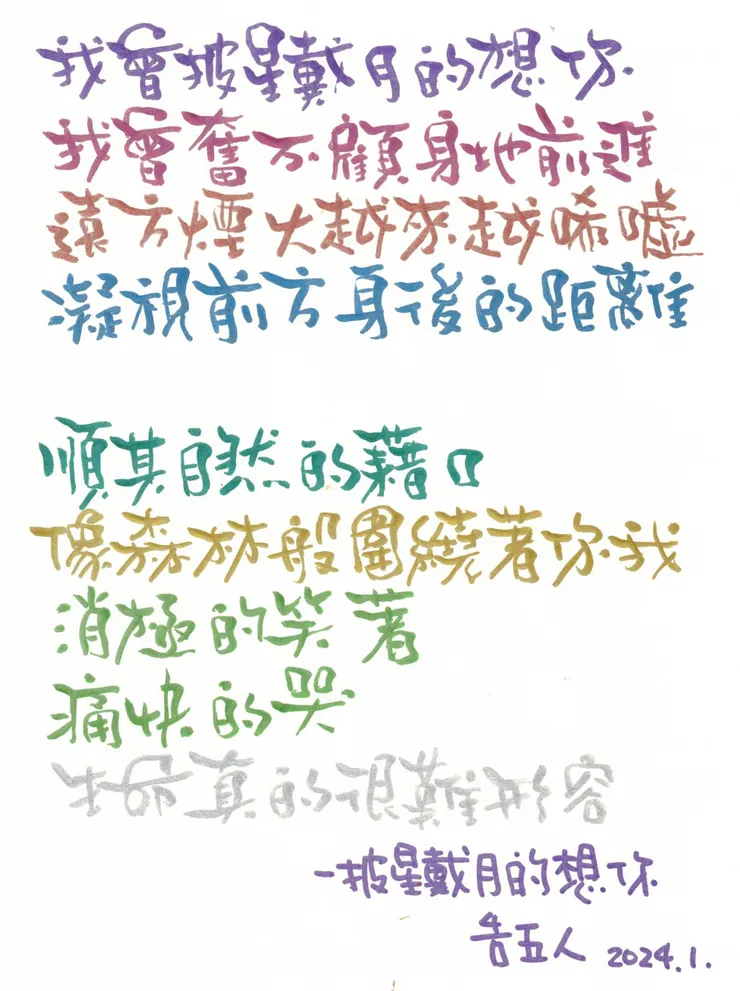 我會披星戴月的想你
我會奮不顧身地前進
遠方煙火越來越唏噓
凝視前方身後的距離
順其自然的藉口
像森林般圍繞著你我
消極的笑著
痛快的哭
生命真的很難形容
－披星戴月的想你
告五人 2024.1.